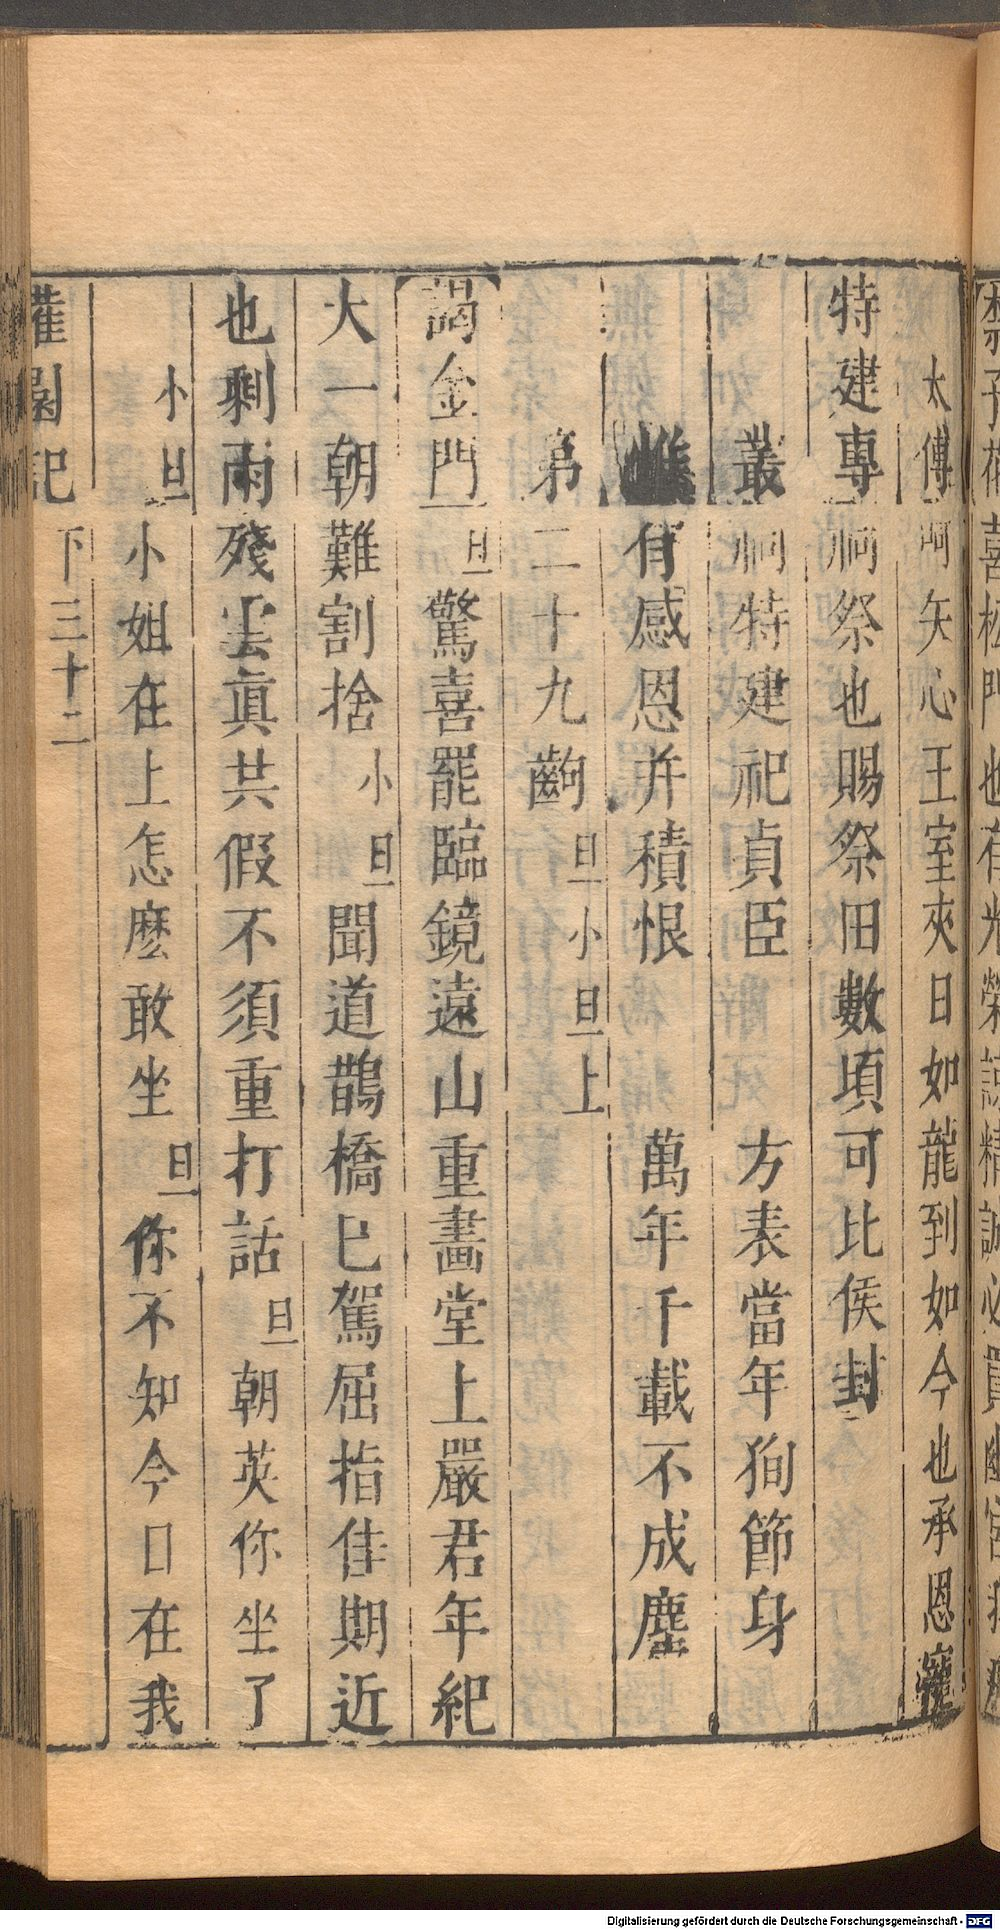 太傅 呵矢心王室夾日如龍到如今也承恩寵
特建專祠祭也賜祭田數頃可比侯封
叢祠特建祀貞臣 方表當年狥節身
惟有感恩并積恨 萬年千載不成塵
第二十九齣 旦小旦上
謁金門 旦驚喜罷臨鏡遠山重畫堂上嚴君年紀
大一朝難割捨 小旦聞道鵲橋已駕屈指佳期近
也剩雨殘雲眞共假不須重打話 旦朝英你坐了
小旦 小姐在上怎麽敢坐 旦你不知今日在我
園記 下三十二
Digitalisierung gefördert durch die Deutsche Forschungsgemeinschaft - DFG